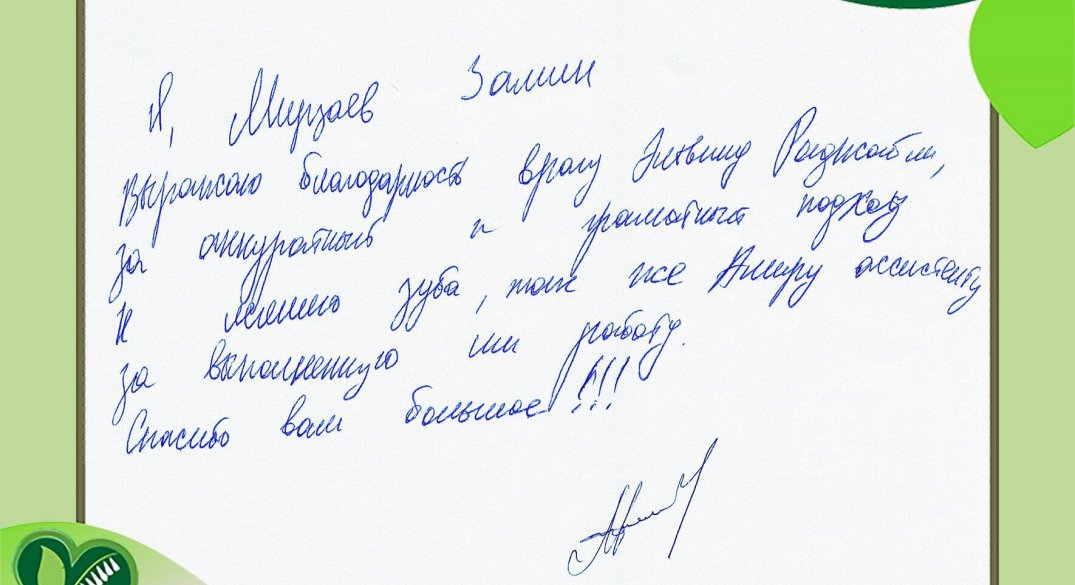 Я, Мирзаев Замин
Выражаю благодарность врачу Раджабли,
за аккуратный и грамотный подход
к зуба, так же Амиру ассистенту
за выполненную им работу.
Спасибо вам большое!!!